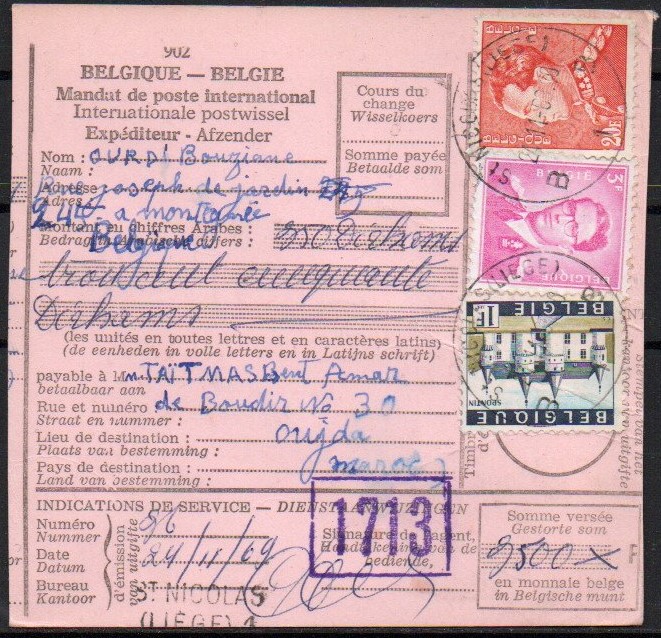 902
BELGIQUE — BELGIE
Mandat de poste international
Internationale postwissel
Expéditeur - Afzender
Cours du
change
Wisselkoers
Somme payée
Betaalde som
Nom : OURDI Bouziane
Naam :
Adresse : Rue joseph de jardin
Adres :
244 a montegnée
Montant en chiffres Arabes : 350 Dirhams
Bedrag in Arabische cijfers :
Belgique
trois cent cinquante
Dirhams
(les unités en toutes lettres et en caractères latins)
(de eenheden in volle letters en in Latijns schrift)
payable à M TAÏTMAS Bent Amar
betaalbaar aan
Rue et numéro de Boudir No 30
Straat en nummer :
Lieu de destination : Oujda
Plaats van bestemming :
Pays de destination : maroc
Land van bestemming :
INDICATIONS DE SERVICE — DIENSTAANWIJZINGEN
Numéro 26
Nummer
Date 24/11/69
Datum
Bureau
Kantoor
d'émission
van uitgifte
ST NICOLAS
(LIÈGE) 1
1713
Signature de l'agent,
Handtekening van de
bediende,
Somme versée
Gestorte som
3500 x F
en monnaie belge
in Belgische munt
Timbre
d'é
Stempel van het
kantoor van uitgifte
20F
BELGIE
BELGIQUE
3F
BELGIË
BELGIQUE
1F
BELGIE
SPONTIN
BELGIQUE
ST NICOLAS (LIEGE)
B
ST NICOLAS (LIEGE) B
B